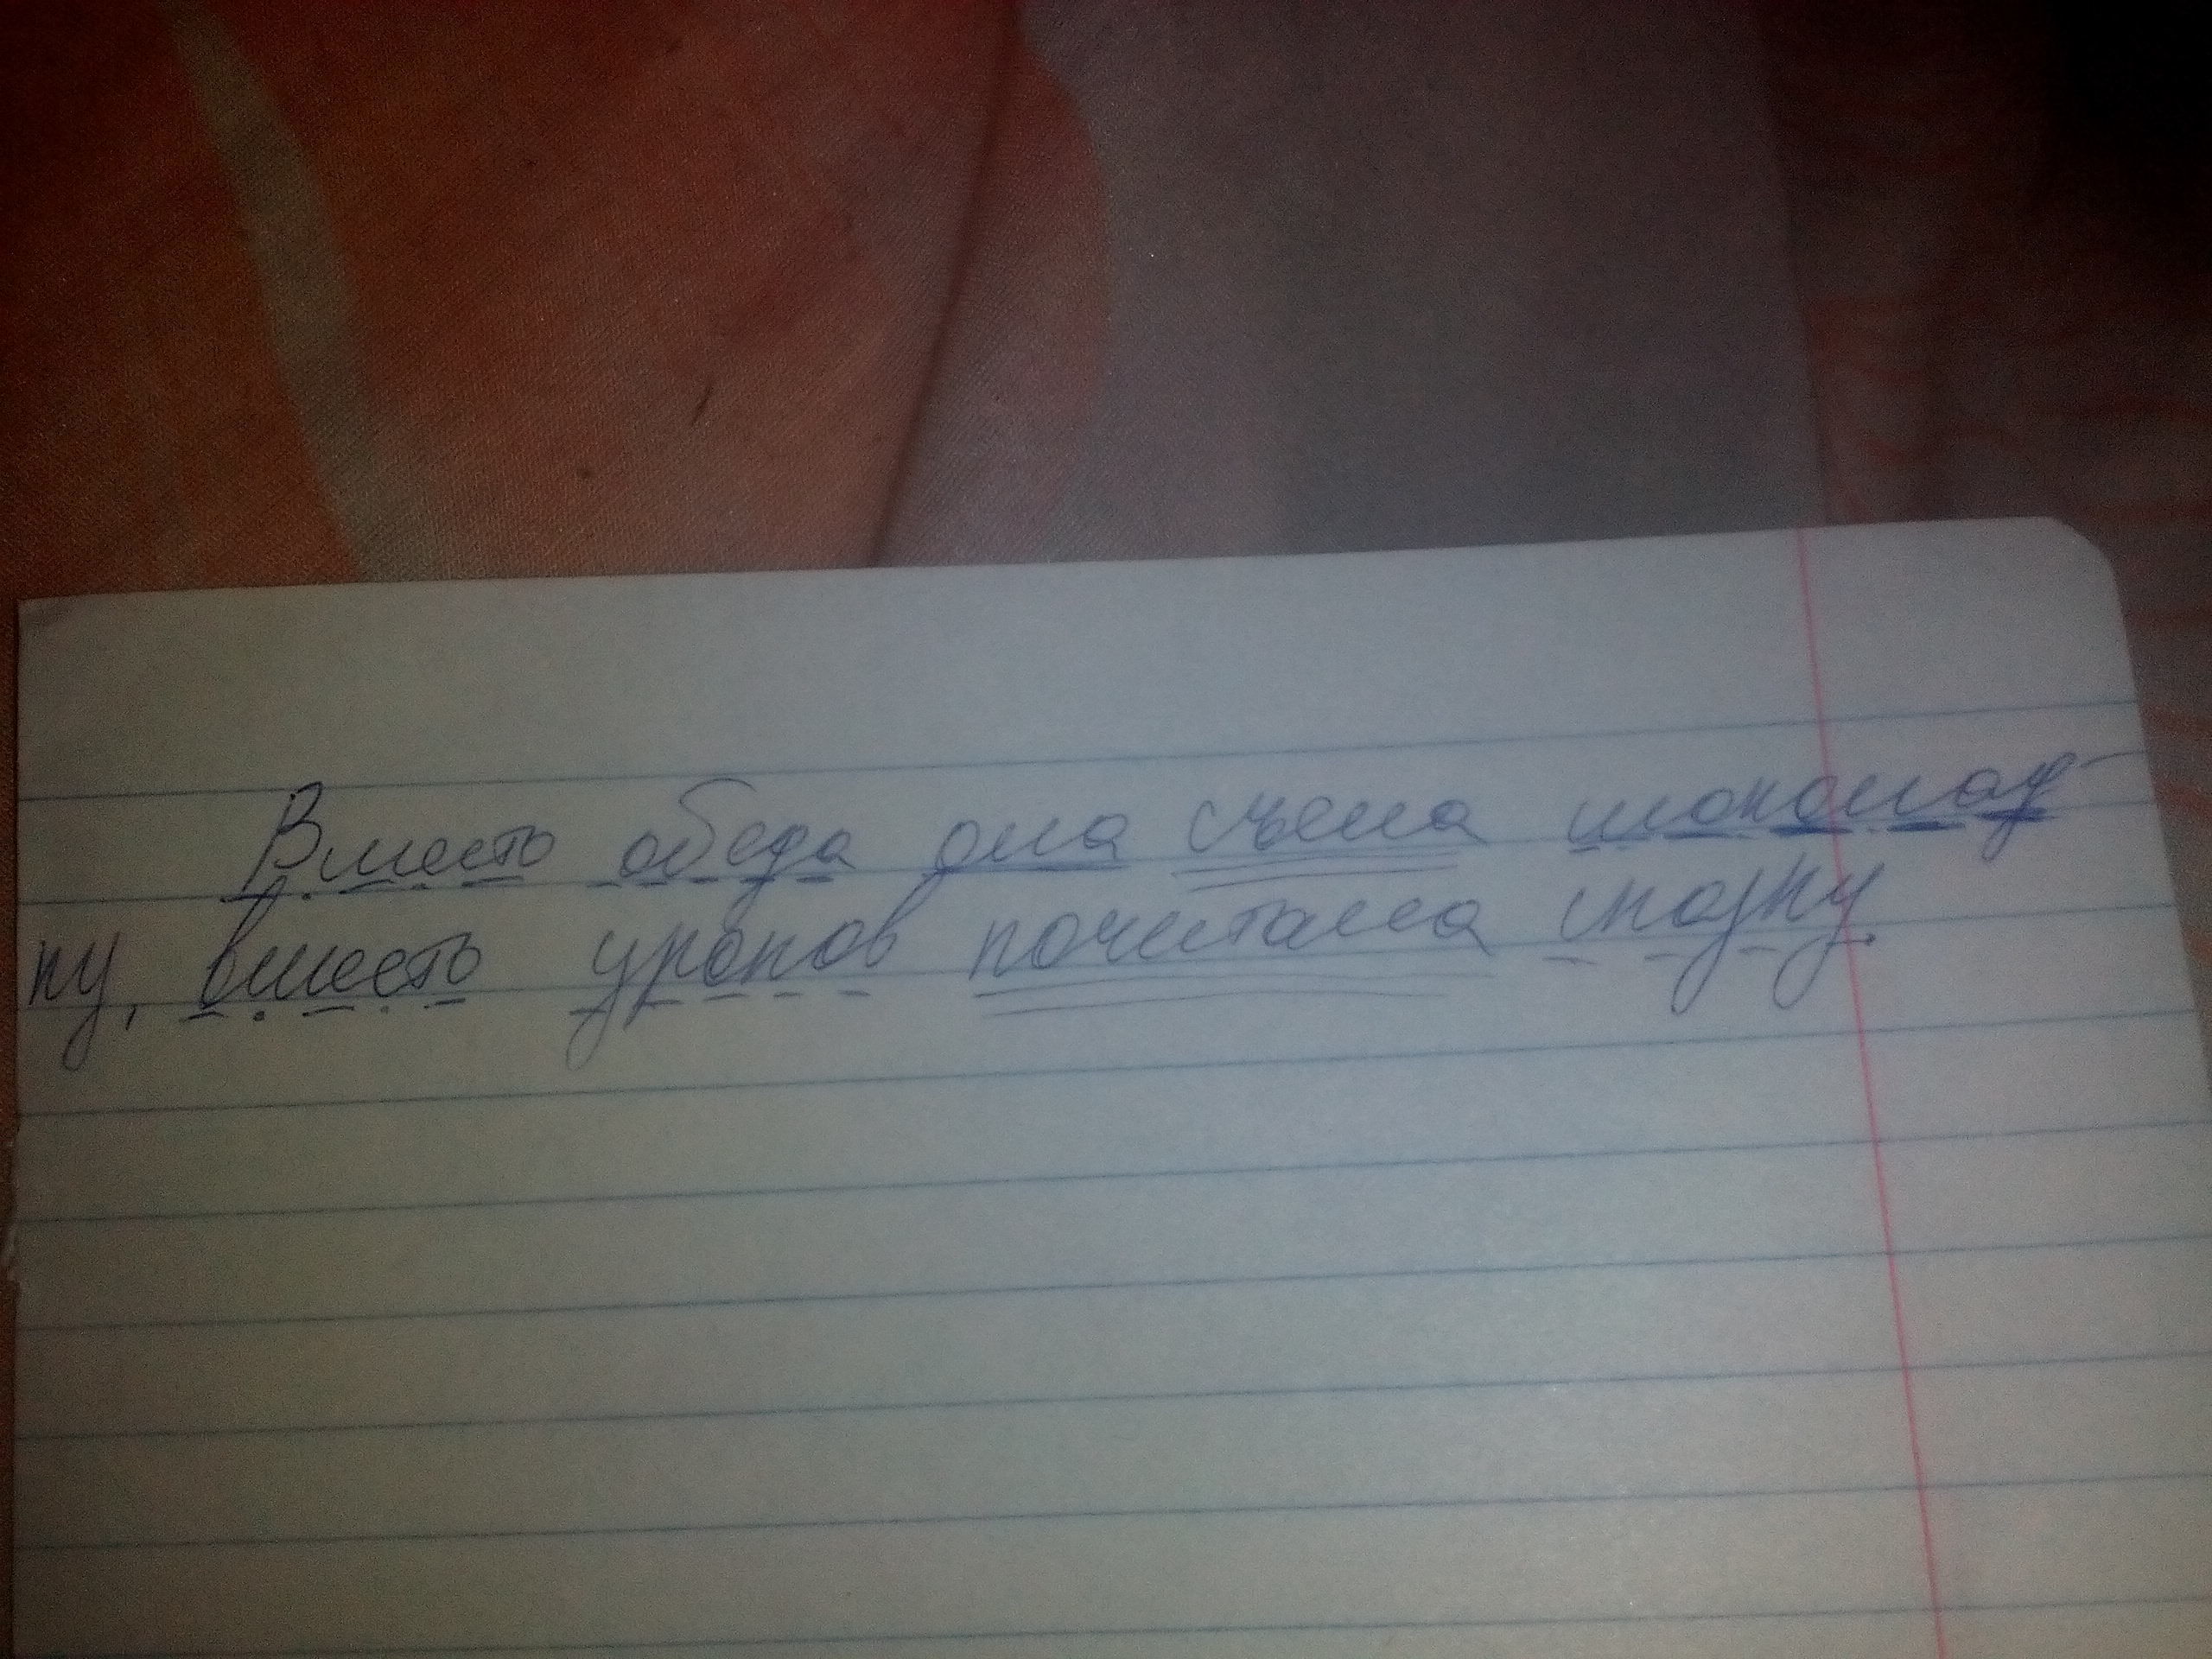 Вместо обеда она съела шоколад-
ку, вместо уроков почитала сказку